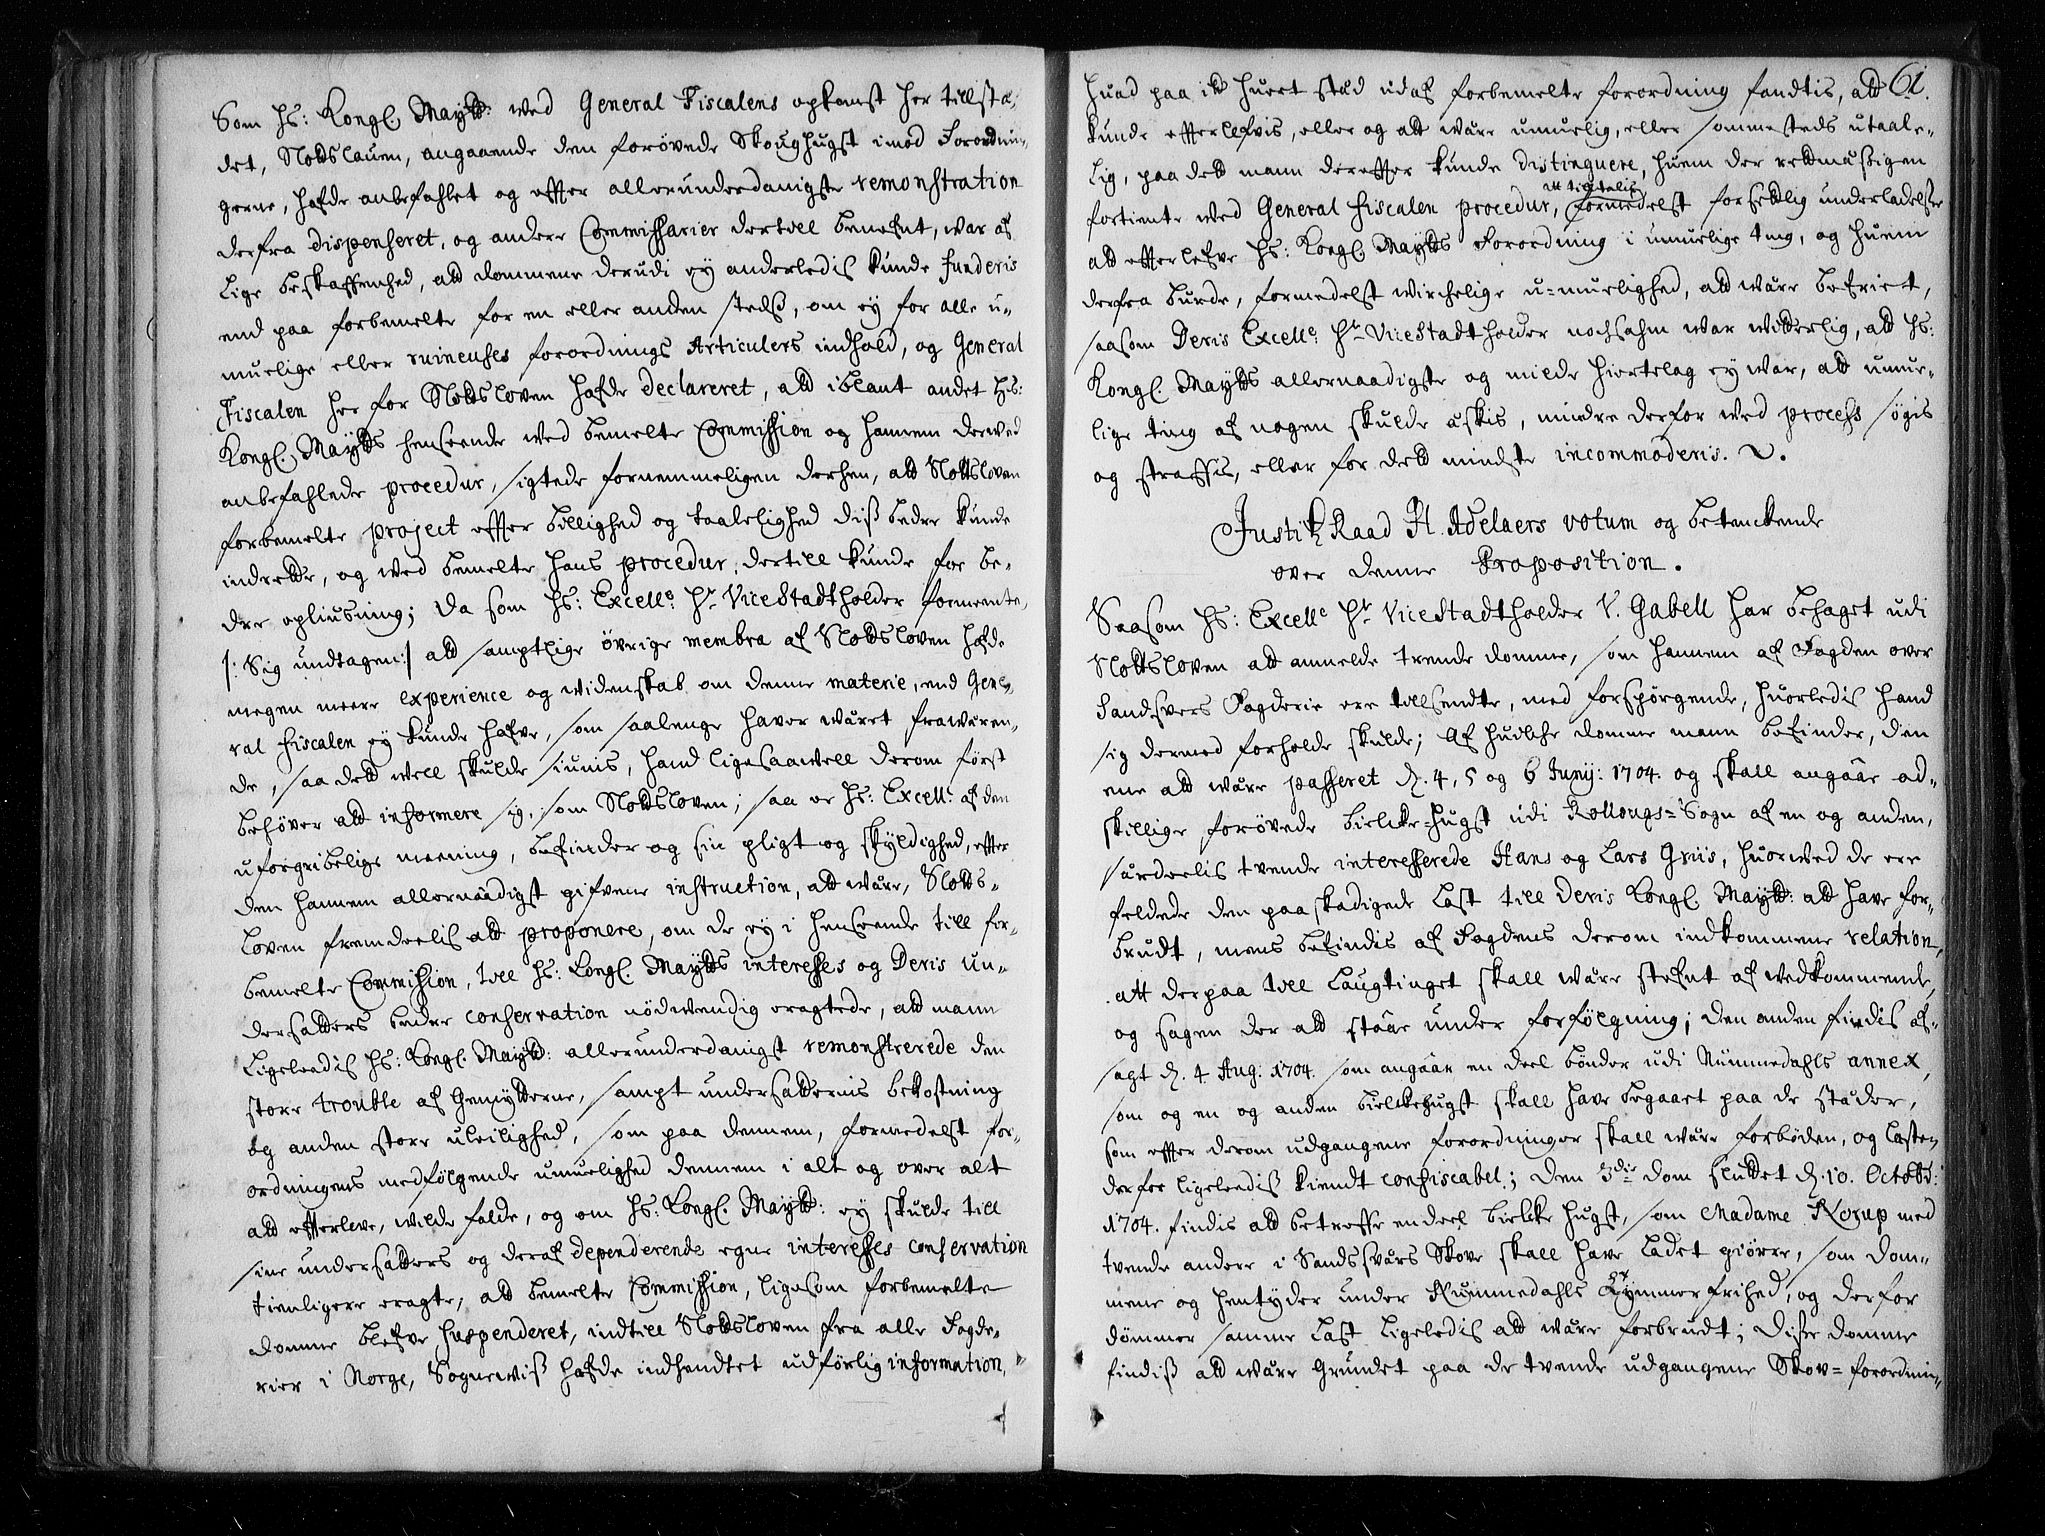 Som Hs: Kongl. Maytt: ved General Fiscalens opkomst her tillstæ-
det, Slottslauen, angaaende den forøvede Skoughugst imod Forordnin-
gerne, hafde anbefahlet og effter allerunderdanigste remonstration
derfra dispenseret, og andere Commissarier dertill benefnt, war af
lige beskaffenhed, att dommene derudi ej anderledis kunde funderis
end paa forbemelte for en eller anden steds, om ej for alle u-
muelige eller ruineuses forordnings Articulers indhold, og General
Fiscalen her for Slottsloven hafde declareret, att iblant andet Hs:
Kongl. Maytts henseende ved bemelte Commission og hannem derved
anbefahlede procedur, sigtede fornemmeligen derhen, att Slottsloven
forbemelte project effter billighed og taalelighed diss bedre kunde
indrette, og ved bemelte hans procedur, dertill kunde faae be-
dre opliusning; Da som Hs: Excell: Hr ViceStadtholder formeente,
/: Sig undtagen :/ att samptlige øvrige membra af Slottsloven hafde
megen meere experience og widenskab om denne materie, end Gene-
ral fiscalen ej kunde hafve, som saalenge haver wæret frawæren-
de, saa dett well skulde siunis, hand ligesaawell derom først
behøver att informere sig, som Slottsloven; saa er Hs: Excell: af den
uforgribelige meening, befinder og sin pligt og skyldighed, effter
den hannem allernaadigst gifvene instruction, att være, Slotts-
loven fremdeelis att proponere, om de ej i henseende till for-
bemelte Commission, till Hs: Kongl. Maytts interesses og Deris un-
dersatters bedre conservation nødwendig eragtede, att mann
ligeleedis Hs: Kongl. Maytt: allerunderdanigst remonstrerede den
store trouble af Gemytterne, sampt undersatternis bekostning
og anden store uleilighed, som paa dennem, formedelst for-
ordningens medfølgende umuelighed dennem i alt og over alt
att efterleve, wilde falde, og om Hs: Kongl. Maytt: ej skulde till
sine undersatters og deraf dependerende egne interesses conservation
tienligere eragte, att bemelte Commission, ligesom forbemelte
domme blefve suspenderet, indtill Slottsloven fra alle Fogde-
rier i Norge, Sogneviss hafde indhendtet udførlig information,
61.
Huad paa ett huert sted udaf forbemelte forordning fandtis, att
kunde efterlefvis, eller og att være umuelig, eller sommesteds utaale-
lig, paa dett mann dereffter kunde distinguere, huem der rettmæssigen
fortiente ved General fiscalen procedur, formedelst forsettlig underladelse
att efterlefve Hs: Kongl. Maytts Forordning i muelige ting, og huem
derfra burde, formedelst wirchelige u-muelighed, att være befriet,
saasom Deris Excell: Hr ViceStadtholder nochsahm war witterlig, att Hs:
Kongl. Maytts allernaadigste og milde hiertelag ej war, att umue-
lige ting af nogen skulde æskis, mindre derfor ved process søgis
og straffis, eller for dett mindste incommoderis.
Justitz Raad H. Adelaers votum og betenckende
over denne Proposition.
Saasom Hs: Excelle Hr ViceStadtholder V. Gabell har behaget udi
Slottsloven att anmelde trende domme, som hannem af Fogden over
Sandsvers Fogderie ere tillsendte, med forspørgende, huorledis hand
sig dermed forholde skulde; Af huilche domme mann befinder, den
ene att være passeret d. 4, 5 og 6 Junij: 1704. og skall angaae ad-
skillige forøvede bielcke-hugst udi Rollougs-Sogn af en og anden,
særdeelis tvende interesserede Hans og Lars Griis, huorved de ere
feldede den paaskadigede Last till Deris Kongl. Maytt: att have for-
brudt, mens befindis af Fogdens derom indkommene relation,
att derpaa till Laugtinget skall være stefnt af vedkommende,
og sagen der att staae under forfølgning; den anden findis af-
sagt d. 4 Aug: 1704. som angaar en deel bønder udi Nummedahls annex,
som og en og anden bielckehugst skall have begaaet paa de stæder,
som effter derom udgangene forordninger skall være forbøden, og lasten
derfor ligeleedis kiendt confiscabel; Den 3die dom sluttet d. 10. Octobr:
1704. findis att betreffe endeel bielcke hugst, som Madame Korup med
tvende andere i Sandsværs Skove skall have ladet giørre, som dom-
mene og hentyder under Nummedahls frihed, og derfor
dømmer samme Last ligeledis att være forbrudt; Disse domme
findiss att være grundet paa de tvende udgangene Skov-forordnin-